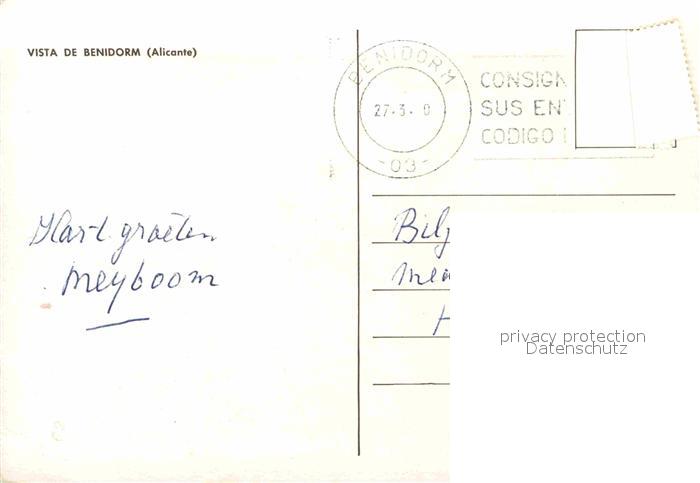 VISTA DE BENIDORM (Alicante)
BENIDORM
27-3- 0
-03-
CONSIGN
SUS EN
CODIGO
Hart groeten
Meyboom
privacy protection
Datenschutz